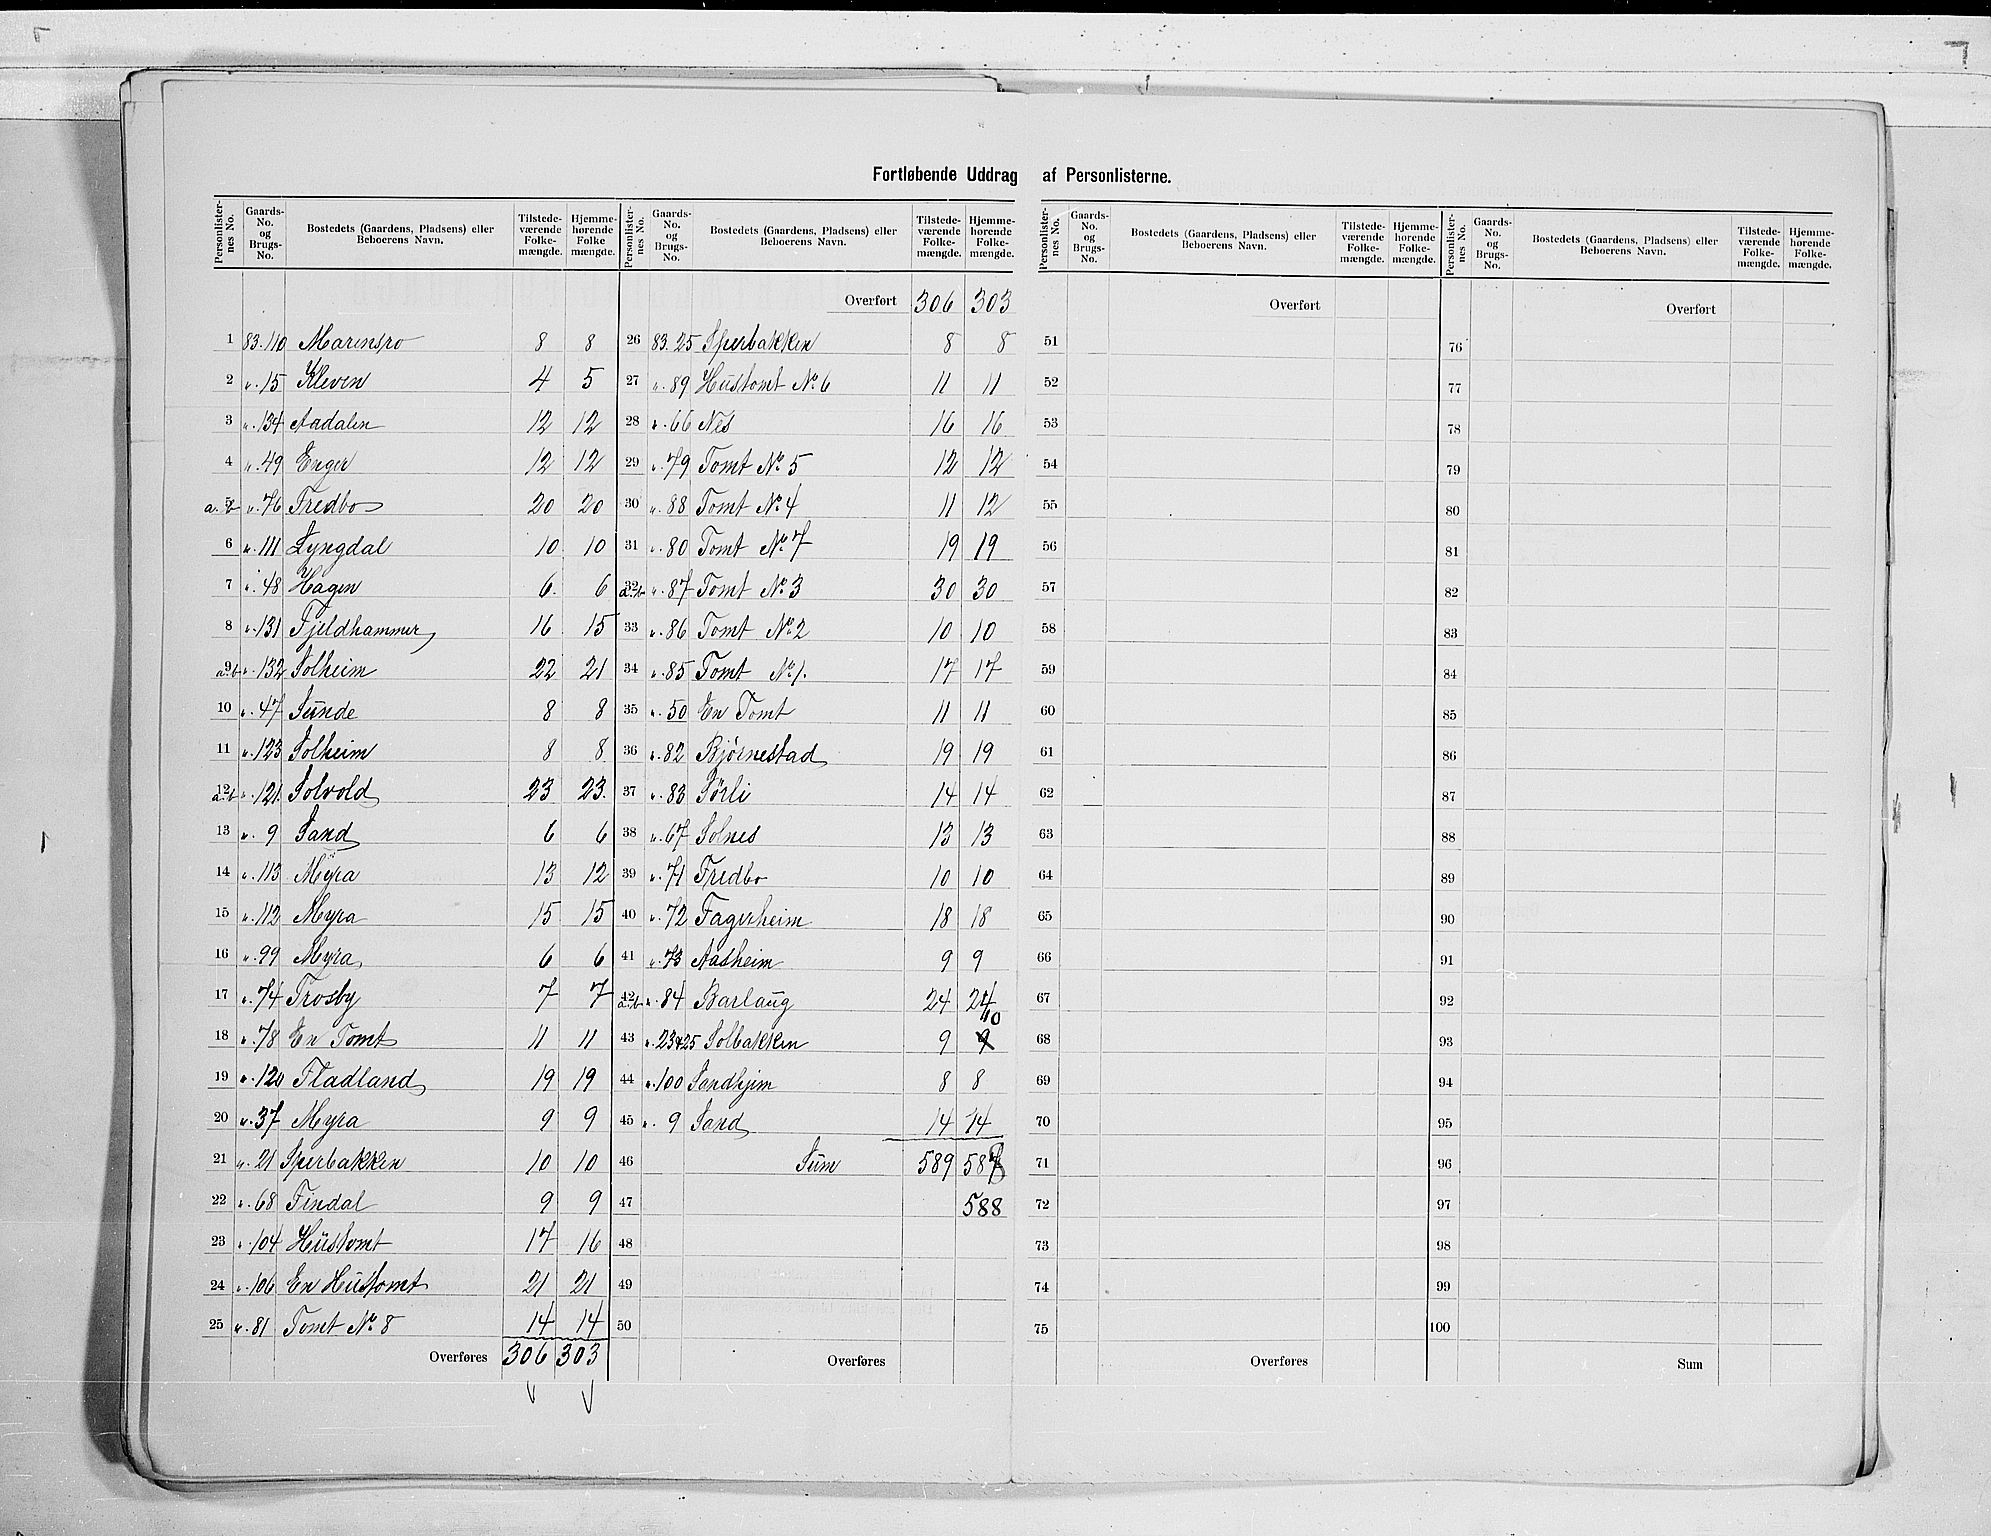 Fortløbende Uddrag af Personlisterne.
Personlister-nes No. | Gaards-No. og Brugs-No. | Bostedets (Gaardens, Pladsens) eller Beboerens Navn. | Tilstede-værende Folke-mængde. | Hjemme-hørende Folke mængde.
1 83.110 Marensro 8 8
2 „.15 Kleven 4 5
3 „.134 Aadalen 12 12
4 „.49 Enger 12 12
5 a.b „.76 Fredbo 20 20
6 „.111 Lyngdal 10 10
7 „.48 Hagen 6. 6
8 „.131 Fjeldhammer 16 15
9 a.b „.132 Solheim 22 21
10 „.47 Sunde 8 8
11 „.123 Solheim 8 8
12 a.b „.121. Solvold 23 23.
13 „. 9 Sand 6 6
14 „.113 Myra 13 12
15 „.112 Myra 15 15
16 „.99 Myra 6 6
17 „.74 Trosby 7 7
18 „.78 En Tomt 11 11
19 „.120 Fladland 19 19
20 „.37 Myra 9 9
21 „.21 Sperbakken 10 10
22 „.68 Findal 9 9
23 „.104 Hustomt 17 16
24 „.106 En Hustomt 21 21
25 „.81 Tomt No. 8 14 14
Overføres 306 303
Personlister-nes No. | Gaards-No. og Brugs-No. | Bostedets (Gaardens, Pladsens) eller Beboerens Navn. | Tilstede-værende Folke-mængde. | Hjemme-hørende Folke-mængde.
Overført 306 303
26 83.25 Sperbakken 8 8
27 „.89 Hustomt No. 6 11 11
28 „.66 Nes 16 16
29 „.79 Tomt No. 5 12 12
30 „.88 Tomt No. 4 11 12
31 „.80 Tomt No. 7 19 19
32 a.b „.87 Tomt No. 3 30 30
33 „.86 Tomt No. 2 10 10
34 „.85 Tomt No. 1. 17 17
35 „.50 En Tomt 11 11
36 „.82 Bjørnestad 19 19
37 „.83 Sørli 14 14
38 „.67 Solnes 13 13
39 „.71 Fredbo 10 10
40 „.72 Fagerheim 18 18
41 „.73 Aasheim 9 9
42 a.b „.84 Barlaug 24 24
43 „.23+25 Solbakken 9 9 10
44 „.100 Sandhjem 8 8
45 „. 9 Sand 14 14
46 Sum 589 587
47 588
48
49
50
Overføres
Personlister-nes No. | Gaards-No. og Brugs-No. | Bostedets (Gaardens, Pladsens) eller Beboerens Navn. | Tilstede-værende Folke-mængde. | Hjemme-hørende Folke-mængde.
Overført
51
52
53
54
55
56
57
58
59
60
61
62
63
64
65
66
67
68
69
70
71
72
73
74
75
Overføres
Personlister-nes No. | Gaards-No. og Brugs-No. | Bostedets (Gaardens, Pladsens) eller Beboerens Navn. | Tilstede-værende Folke-mængde. | Hjemme-hørende Folke-mængde.
Overført
76
77
78
79
80
81
82
83
84
85
86
87
88
89
90
91
92
93
94
95
96
97
98
99
100
Sum